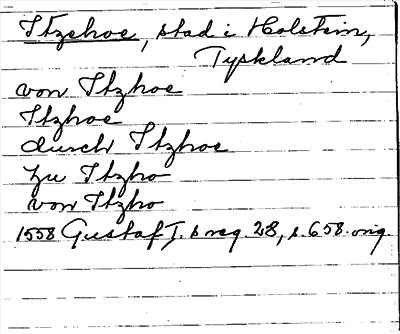 Itzehoe, stad i Holstein,
Tyskland
von Itzhoe
Itzhoe
durch Itzhoe
zu Itzho
von Itzho
1558 Gustaf I.s reg. 28, s. 658. orig.